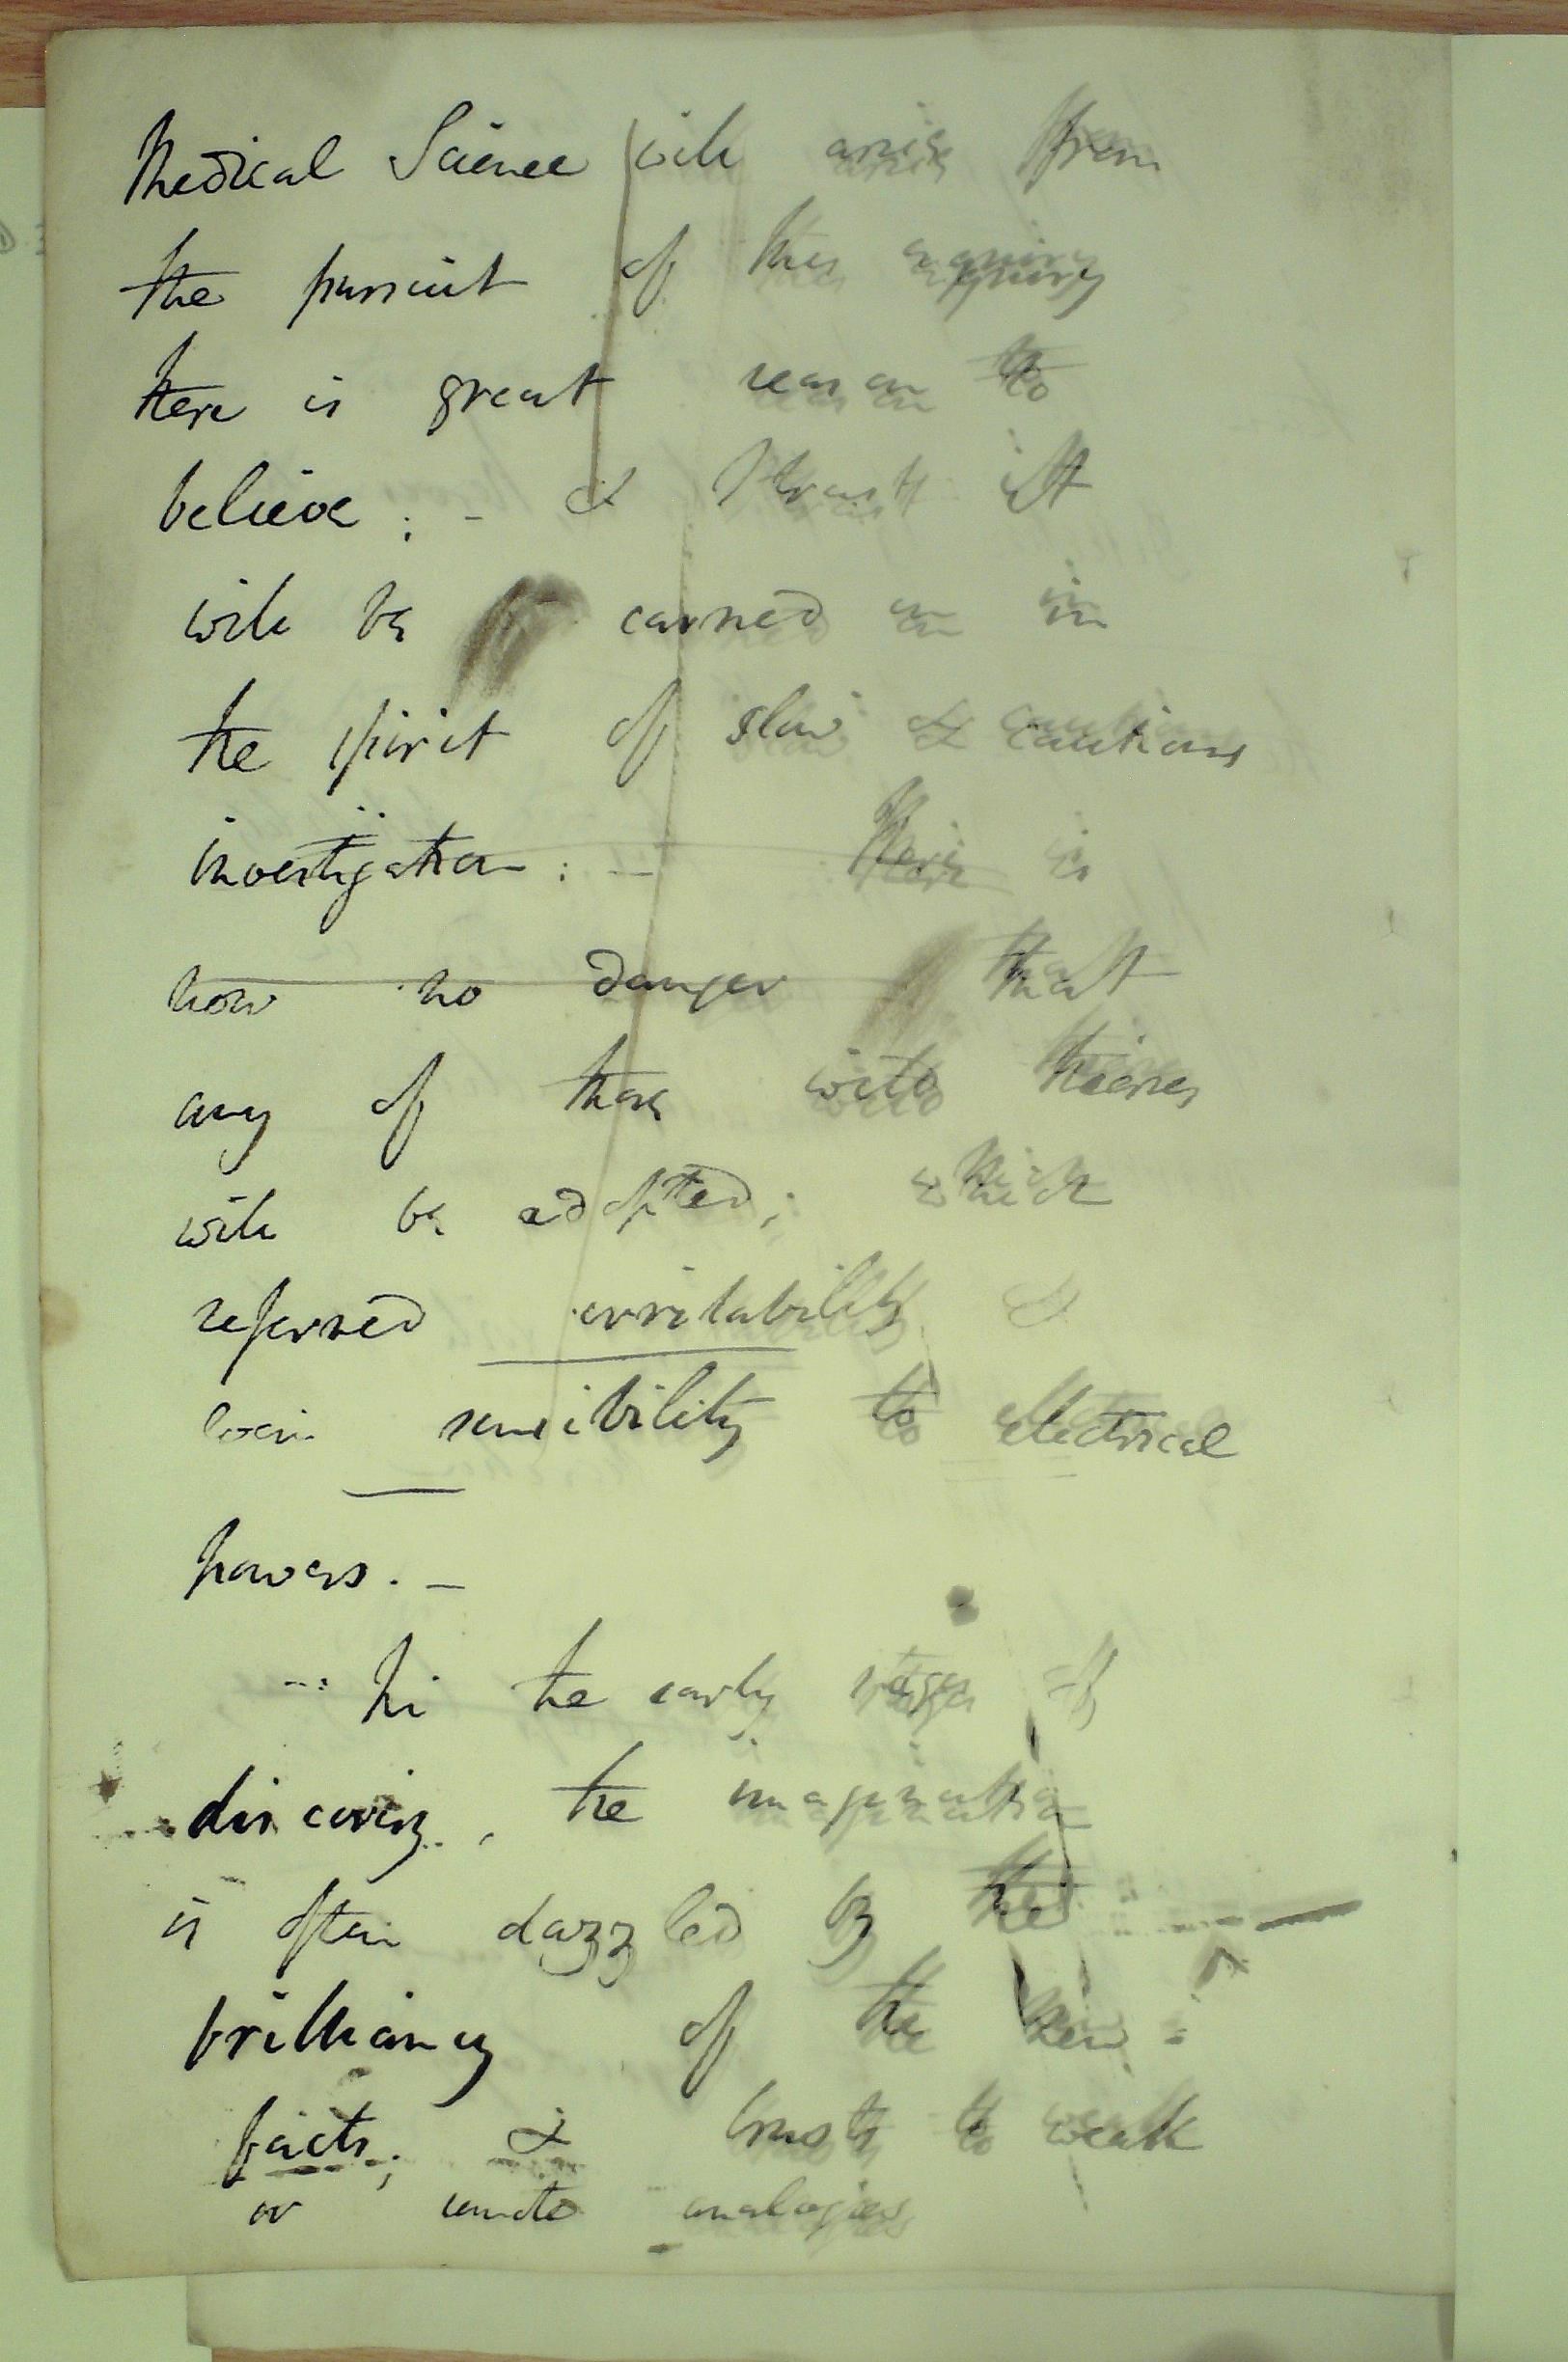 Medical Science will arise from
the pursuit of this enquiry
there is great reason to
believe; - & I trust it
will be carried on in
the spirit of slow & cautious
investigation: - There is
now no danger that
any of those
will be adopted; which
referred irritability &
sensibility to electrical
powers. -
In the early stages of
discovery, the imagination
is often dazzled by the
brilliancy of the new
facts; & trusts to weak
or remote analogies